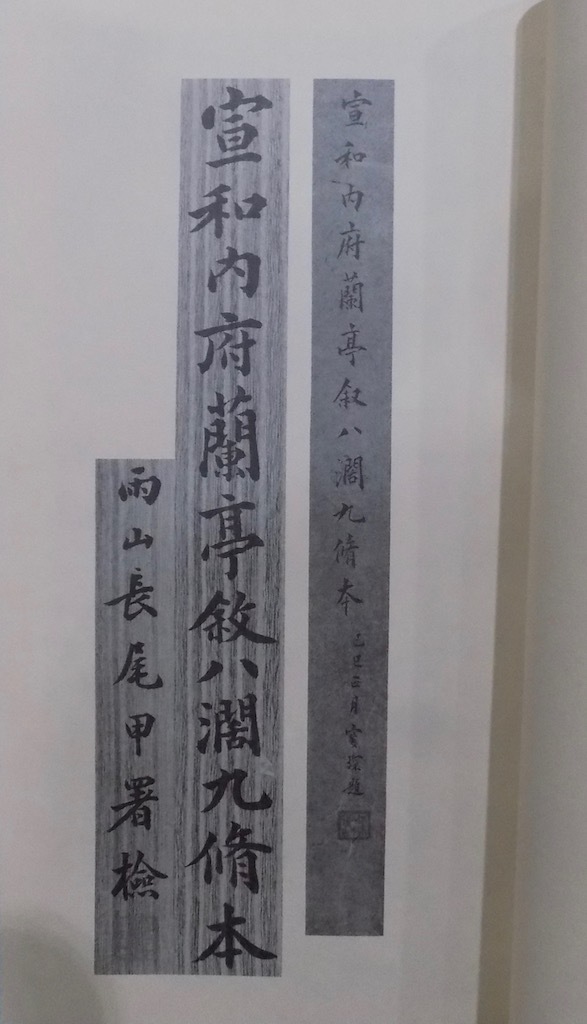 宣和内府蘭亭叙八濶九脩本 己巳正月 寳琛題
宣和内府蘭亭敘八濶九脩本
雨山長尾甲署檢